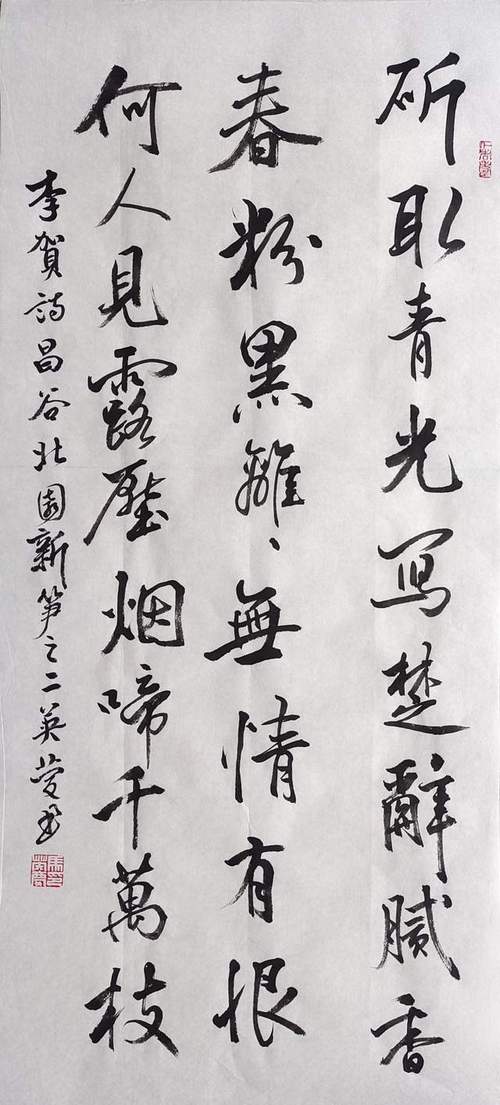 斫取青光写楚辭膩香
春粉黑離〻無情有恨
何人見露壓烟啼千萬枝
李賀詩昌谷北園新笋之二英书